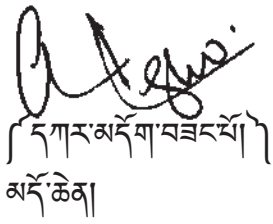 ༼དཀར་མདོག་བཟང་པོ།༽
མདོ་ཆེན།